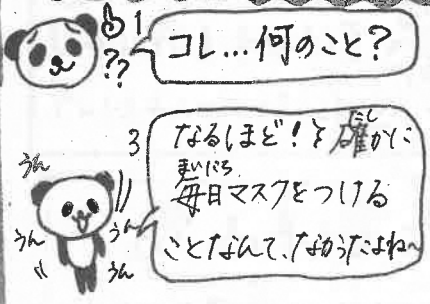 1
??
コレ…何のこと?
3
なるほど！確かに
毎日マスクをつける
ことなんて、なかったよね〜
うん
うん
うん
うん